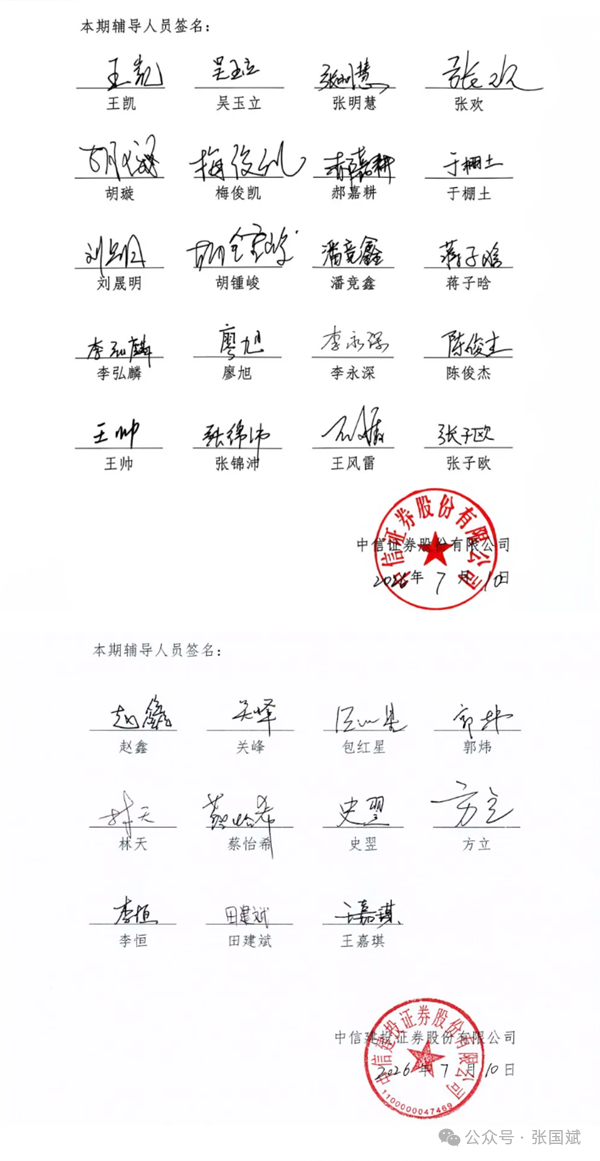 本期辅导人员签名：
王凯 吴玉立 张明慧 张欢
王凯 吴玉立 张明慧 张欢
胡璇 梅俊凯 郝嘉耕 于棚土
胡璇 梅俊凯 郝嘉耕 于棚土
刘晟明 胡锺峻 潘竞鑫 蒋子晗
刘晟明 胡锺峻 潘竞鑫 蒋子晗
李弘麟 廖旭 李永深 陈俊杰
李弘麟 廖旭 李永深 陈俊杰
王帅 张锦沛 张子欧
王帅 张锦沛 王风雷 张子欧
中信证券股份有限公司
中信证券股份有限公司
2026年 7 月 10日
本期辅导人员签名：
赵鑫 关峰 郭炜
赵鑫 关峰 包红星 郭炜
林天 蔡怡希 史翌 方立
林天 蔡怡希 史翌 方立
李恒 田建斌 王嘉琪
李恒 田建斌 王嘉琪
中信建投证券股份有限公司
中信建投证券股份有限公司
2026年 7 月 10日
1100000047469
公众号·张国斌